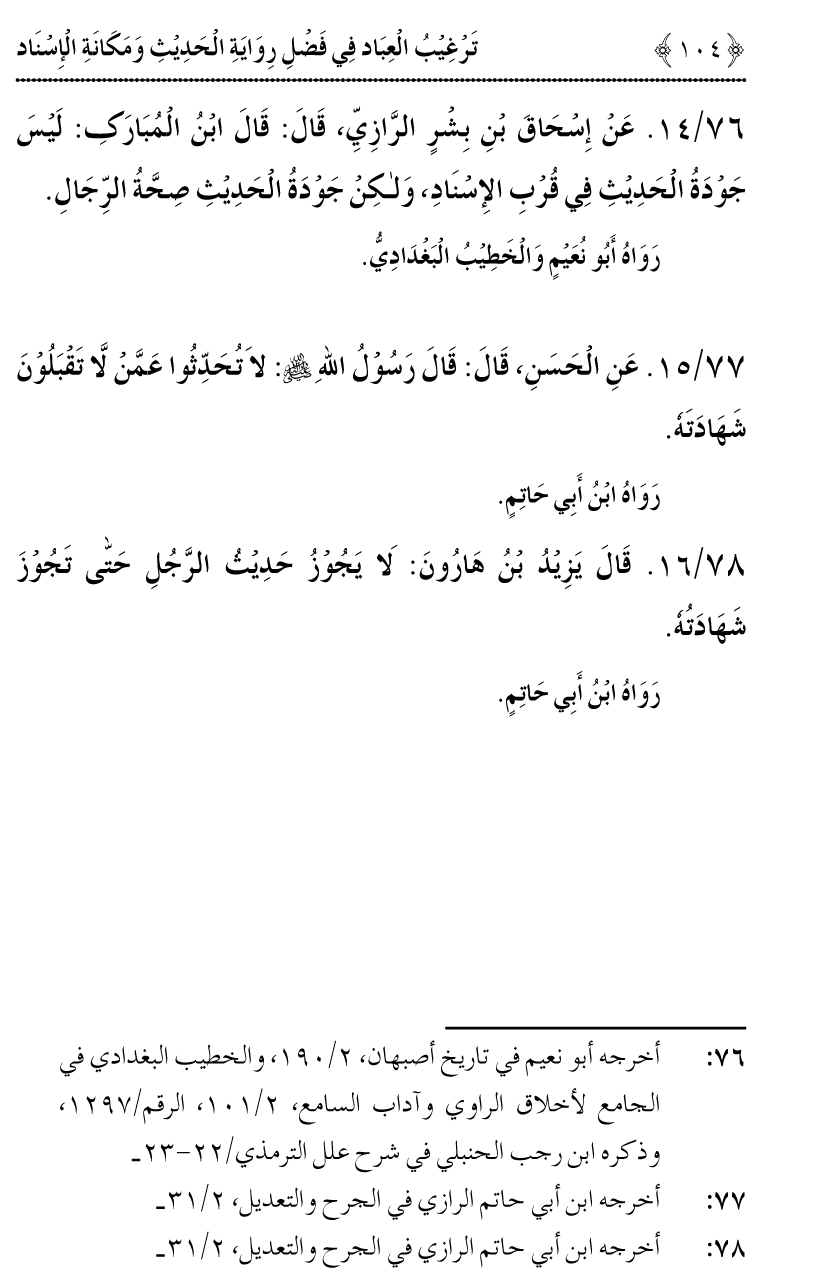 ﴿١٠٤﴾ تَرْغِيْبُ الْعِبَاد فِي فَضْلِ رِوَايَةِ الْحَدِيْثِ وَمَكَانَةِ الْإِسْنَاد
١٤/٧٦. عَنْ إِسْحَاقَ بْنِ بِشْرٍ الرَّازِيِّ، قَالَ: قَالَ ابْنُ الْمُبَارَكِ: لَيْسَ
جَوْدَةُ الْحَدِيْثِ فِي قُرْبِ الإِسْنَادِ، وَلٰكِنْ جَوْدَةُ الْحَدِيْثِ صِحَّةُ الرِّجَالِ.
رَوَاهُ أَبُو نُعَيْمٍ وَالْخَطِيْبُ الْبَغْدَادِيُّ.
١٥/٧٧. عَنِ الْحَسَنِ، قَالَ: قَالَ رَسُوْلُ اللهِ ﷺ: لاَ تُحَدِّثُوا عَمَّنْ لَّا تَقْبَلُوْنَ
شَهَادَتَهٗ.
رَوَاهُ ابْنُ أَبِي حَاتِمٍ.
١٦/٧٨. قَالَ يَزِيْدُ بْنُ هَارُونَ: لَا يَجُوْزُ حَدِيْثُ الرَّجُلِ حَتّٰى تَجُوْزَ
شَهَادَتُهٗ.
رَوَاهُ ابْنُ أَبِي حَاتِمٍ.
٧٦: أخرجه أبو نعيم في تاريخ أصبهان، ٢/١٩٠، والخطيب البغدادي في
الجامع لأخلاق الراوي وآداب السامع، ٢/١٠١، الرقم/١٢٩٧،
وذكره ابن رجب الحنبلي في شرح علل الترمذي/٢٢-٢٣ـ
٧٧: أخرجه ابن أبي حاتم الرازي في الجرح والتعديل، ٢/٣١ـ
٧٨: أخرجه ابن أبي حاتم الرازي في الجرح والتعديل، ٢/٣١ـ